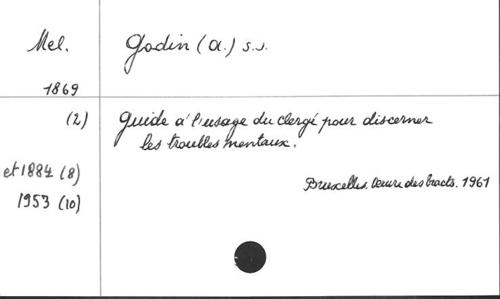 Mel.
Godin (A.) s.J.
1869
(2)
Guide à l'usage du clergé pour discerner
les troubles mentaux.
et 1884 (8)
1953 (10)
Bruxelles. Oeuvre des tracts. 1961